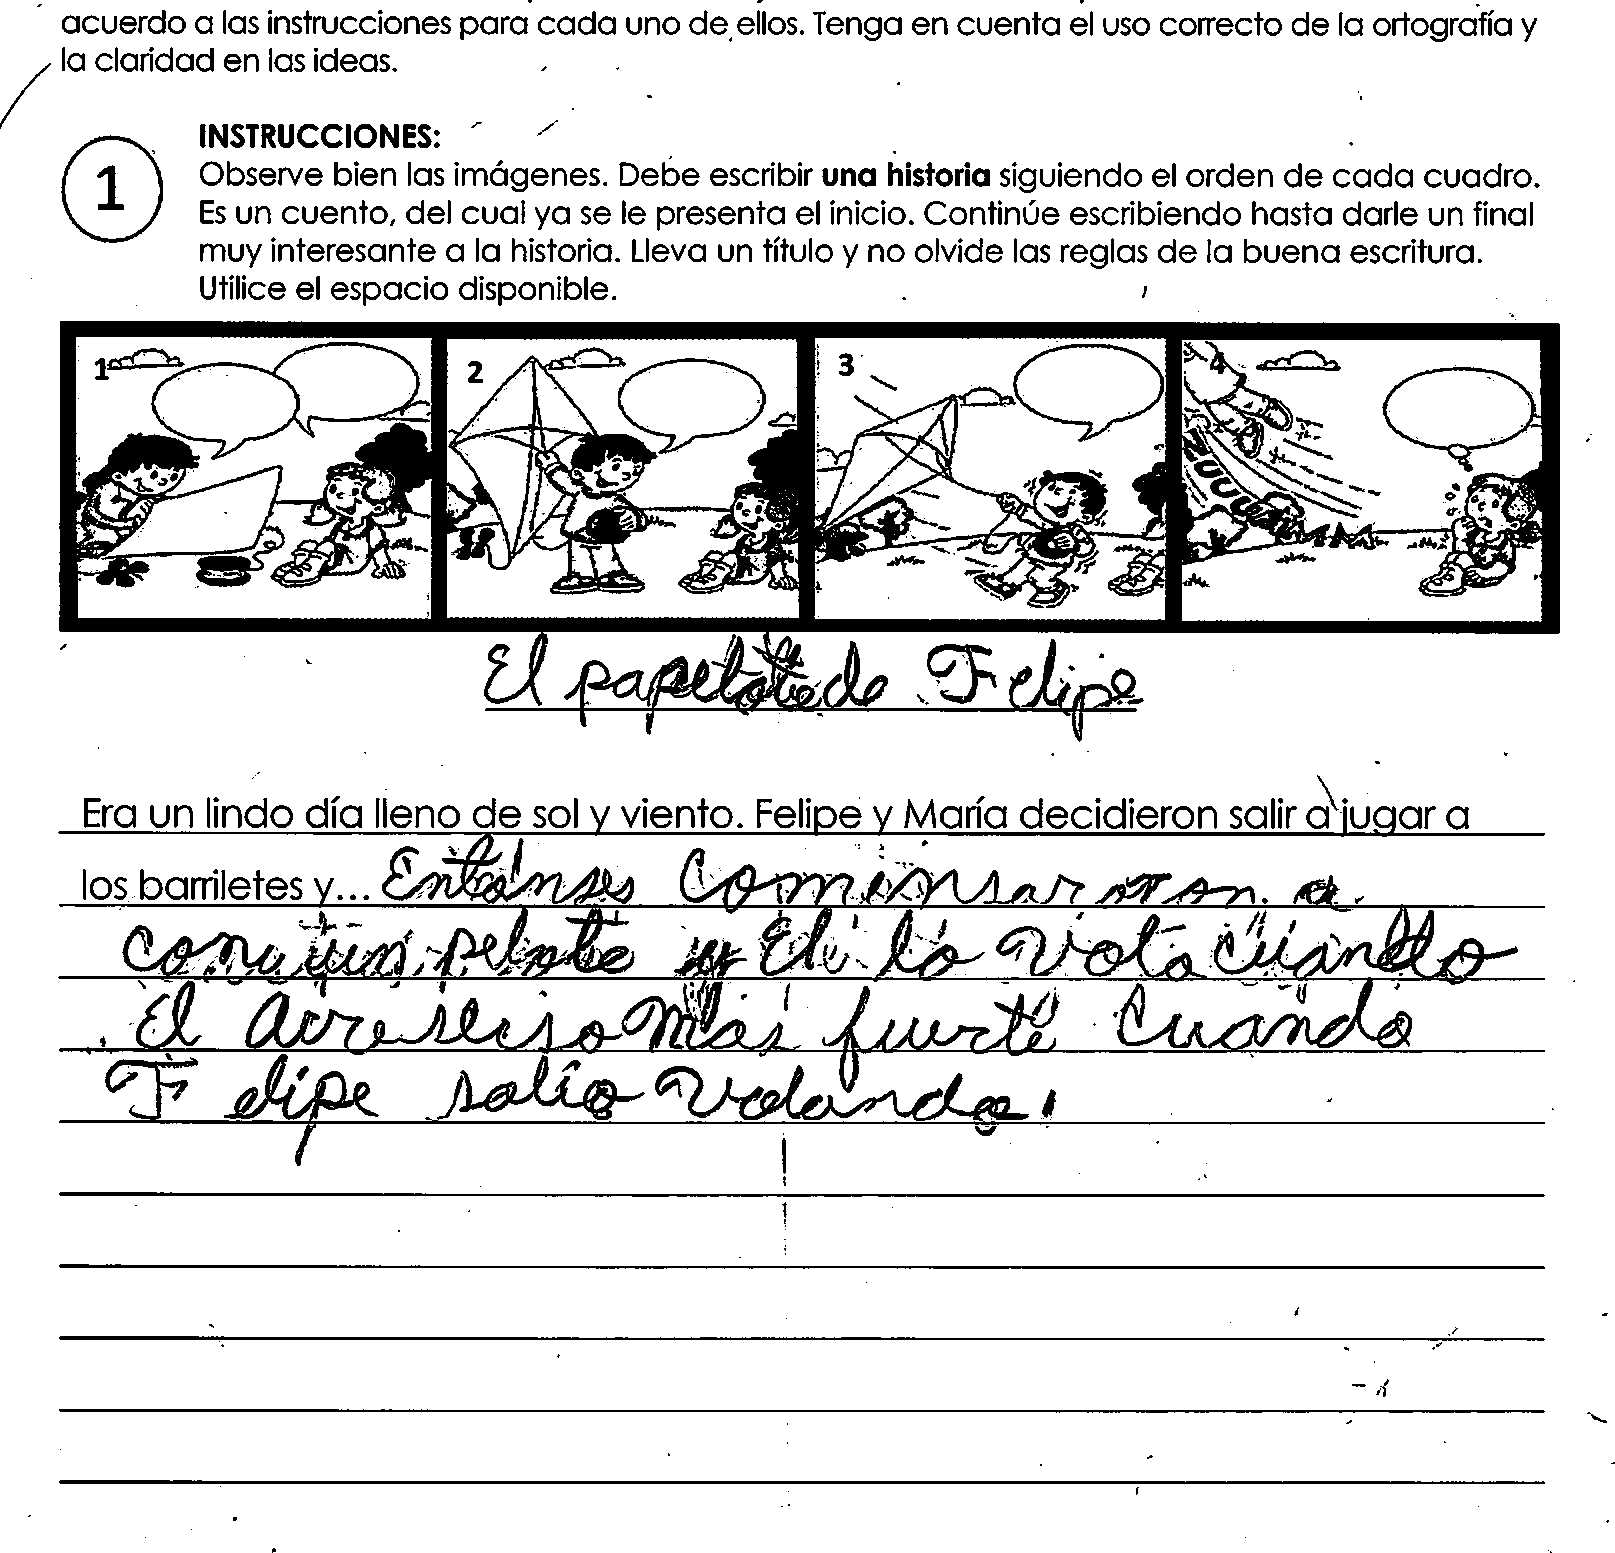 acuerdo a las instrucciones para cada uno de ellos. Tenga en cuenta el uso correcto de la ortografía y
la claridad en las ideas.
1
INSTRUCCIONES:
Observe bien las imágenes. Debe escribir una historia siguiendo el orden de cada cuadro.
Es un cuento, del cual ya se le presenta el inicio. Continúe escribiendo hasta darle un final
muy interesante a la historia. Lleva un título y no olvide las reglas de la buena escritura.
Utilice el espacio disponible.
1 2 3 4
El papelote de Felipe
Era un lindo día lleno de sol y viento. Felipe y María decidieron salir a jugar a
los barriletes y... Entonses Cominsaron a
con un pelote y El lo Vota Cuando
El más fuerte Cuando
Felipe salio Volando.